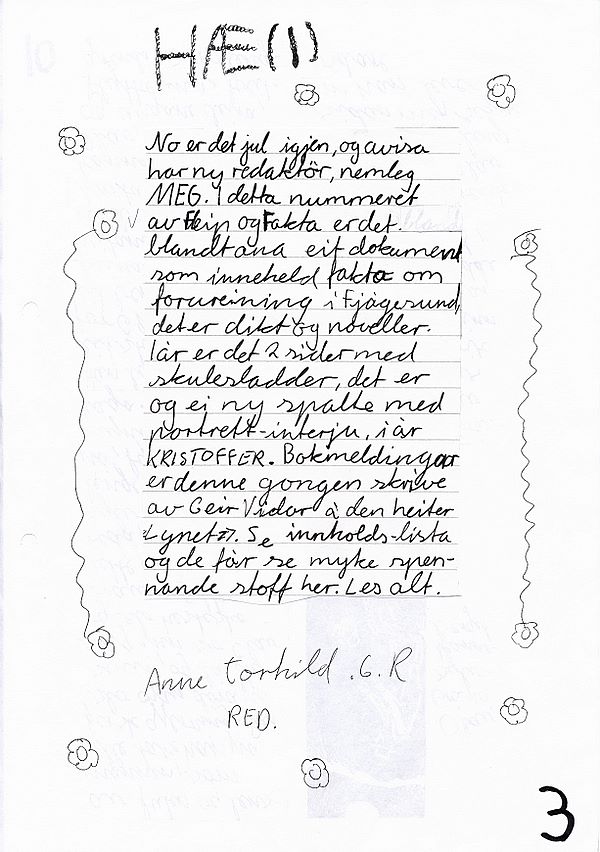 HÆ(!)
No er det jul igjen, og avisa
har ny redaktör, nemleg
MEG. I detta nummeret
av Fleip og Fakta er det
blandt ana eit dokument
som inneheld fakta om
forureining i Fjågesund,
det er dikt og noveller.
I år er det 2 sider med
skulesladder, det er
og ei ny spalte med
portrett-interju, i år
KRISTOFFER. Bokmeldingar
er denne gongen skrive
av Geir Vidar å den heiter
«Lynet». Se innholds-lista
og de får se myke spen-
nande stoff her. Les alt.
Anne Torhild .G.R
RED.
3